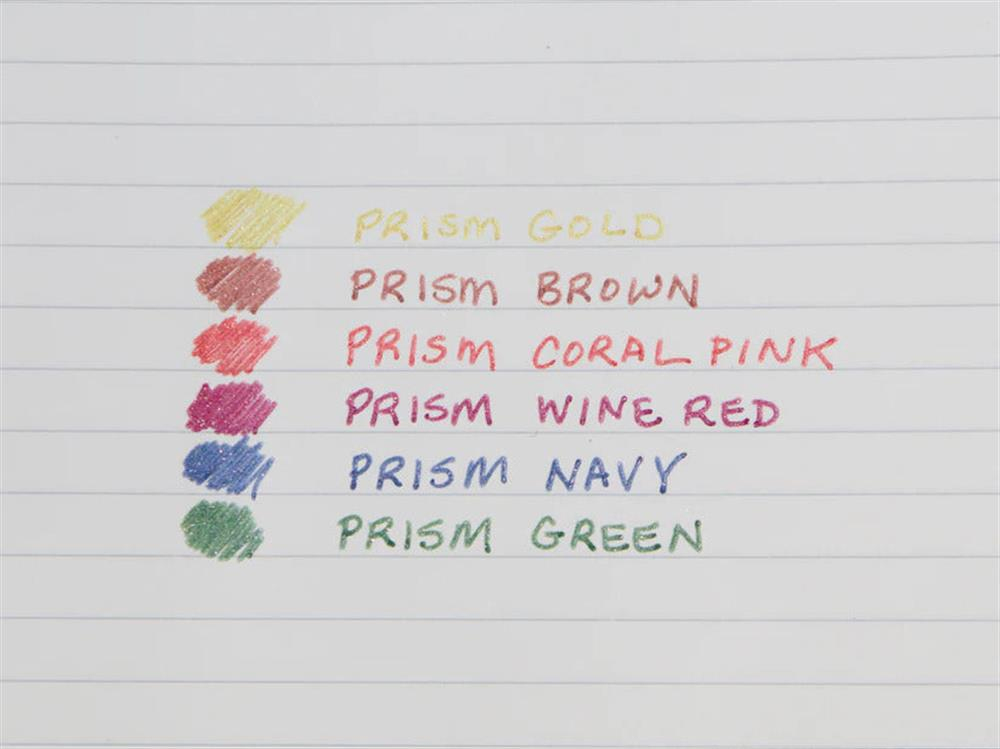 PRISM GOLD
PRISM BROWN
PRISM CORAL PINK
PRISM WINE RED
PRISM NAVY
PRISM GREEN